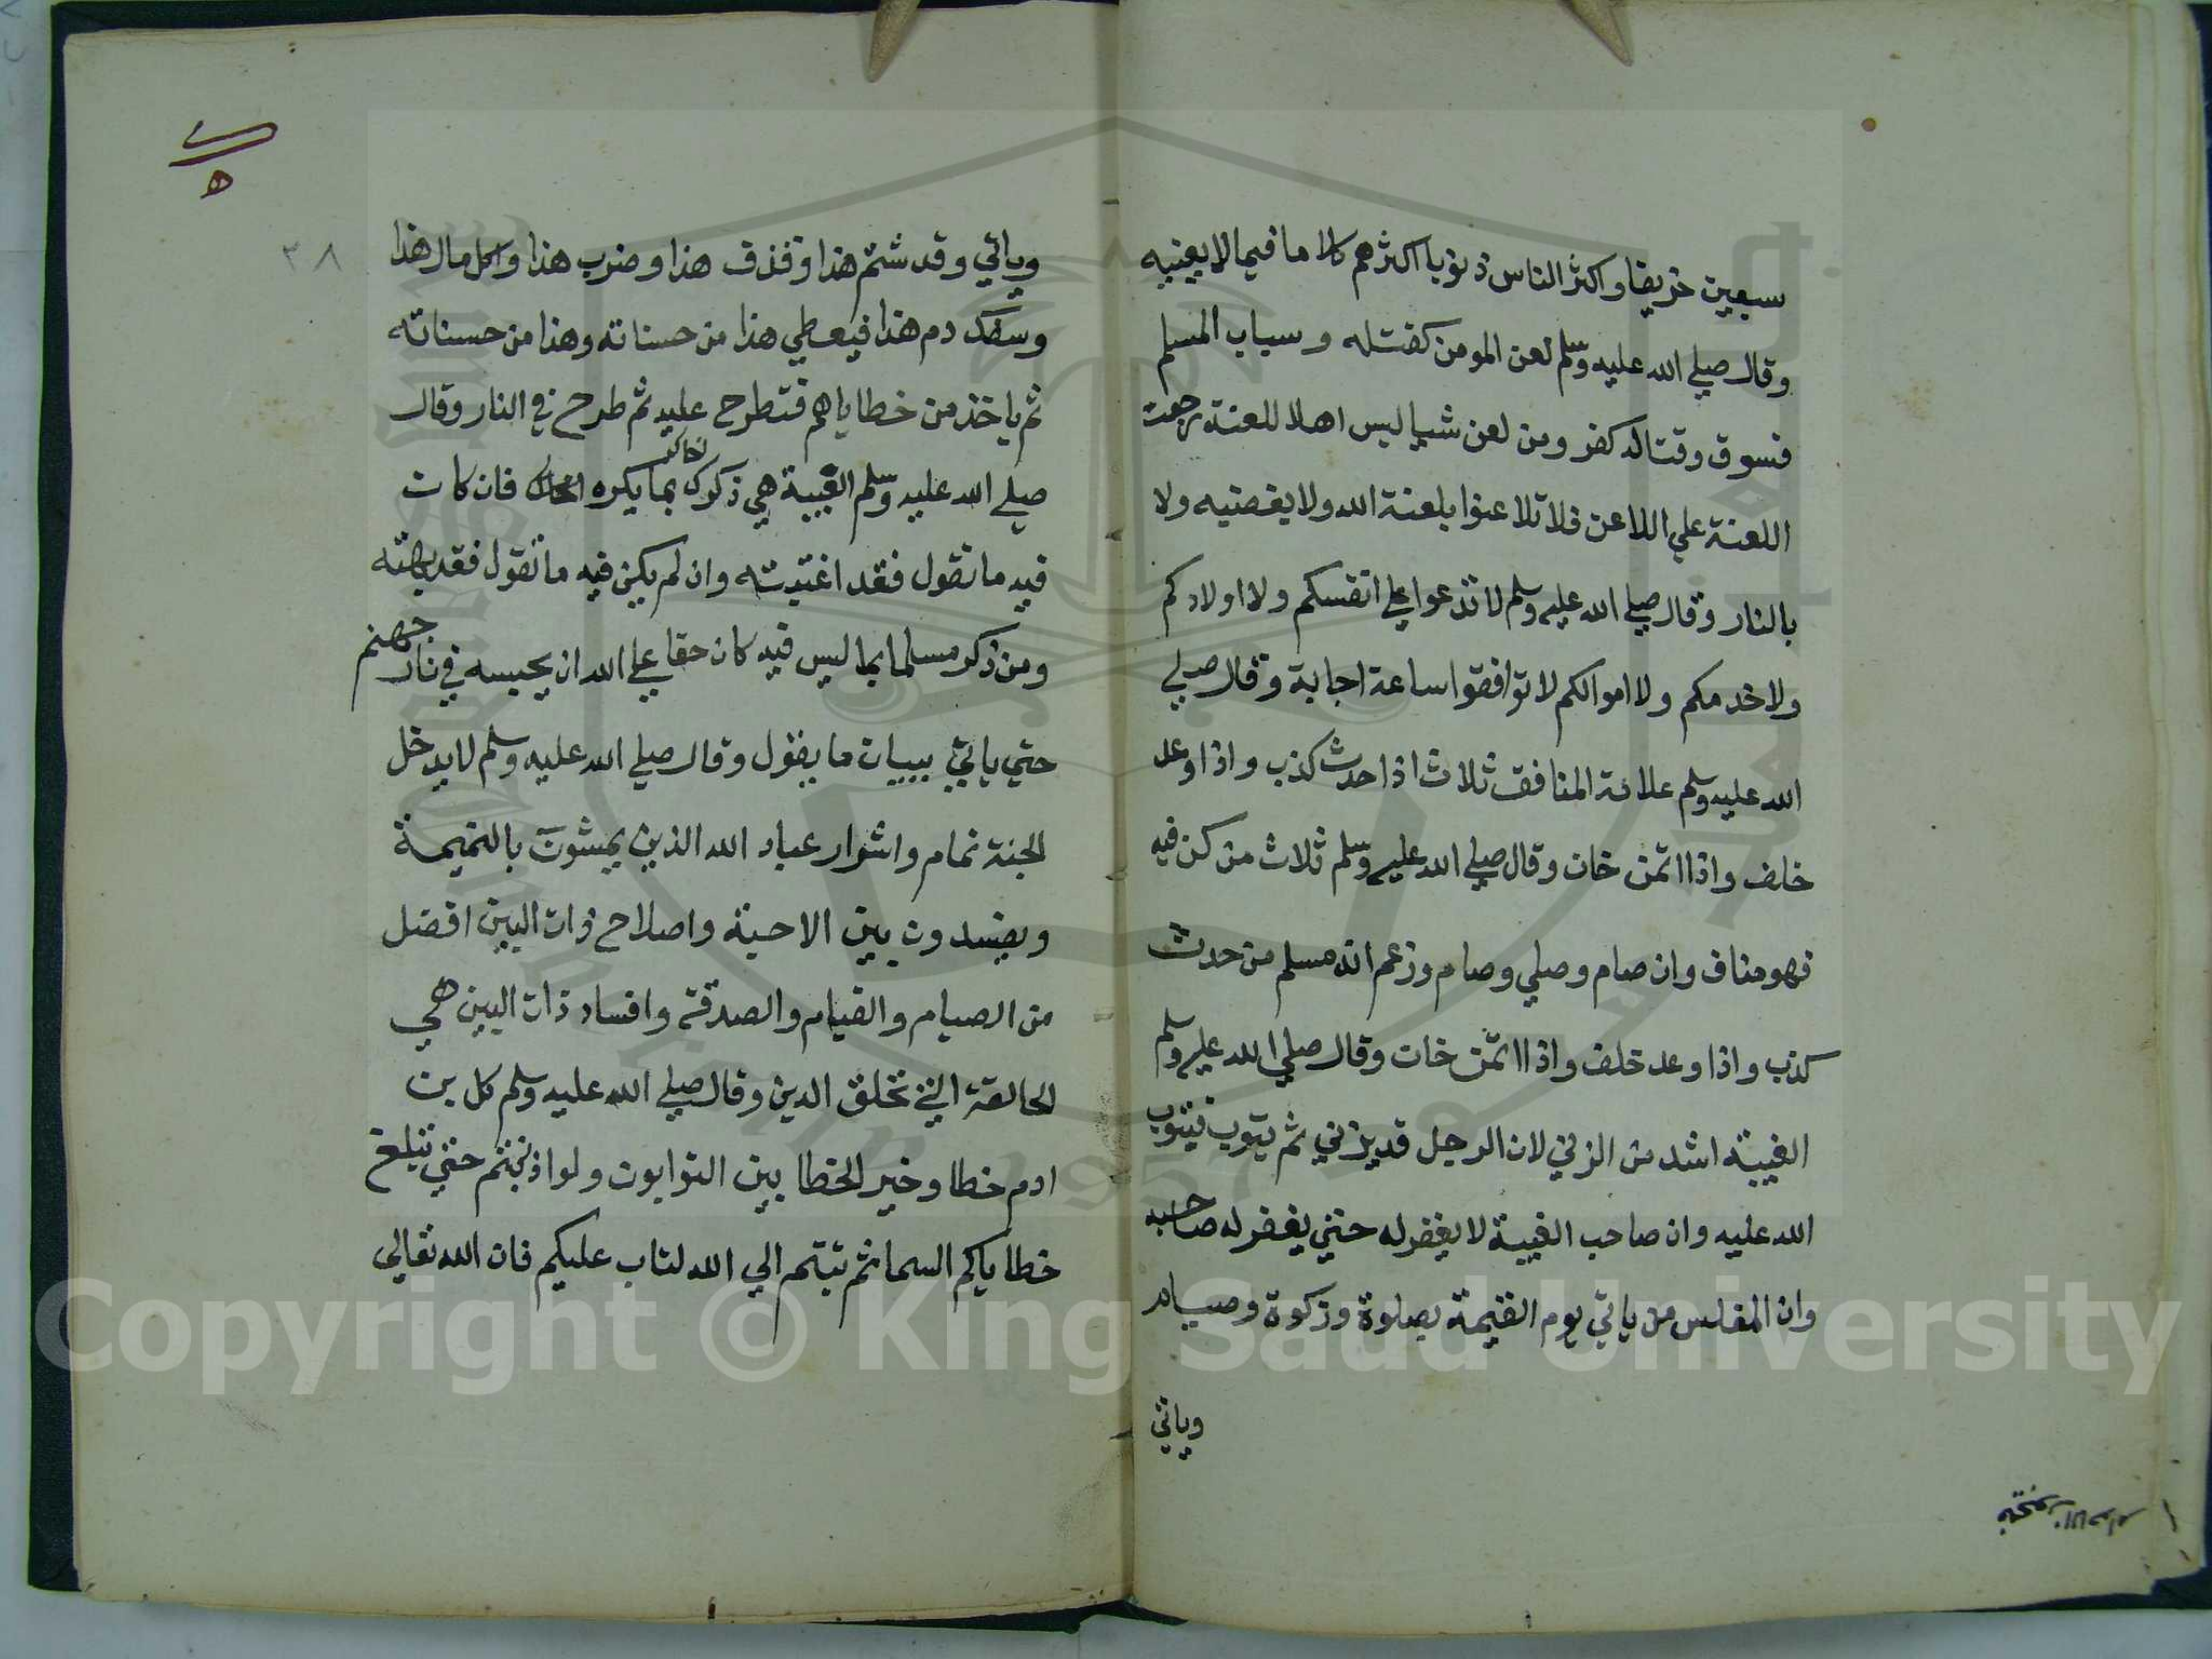 سبعين خريفا واكثر الناس ذنوبا اكثرهم كلاما فيما لا يعنيه
وقال صلي الله عليه وسلم لعن المومن كقتله وسباب المسلم
فسوق وقتاله كفر ومن لعن شيا ليس اهلا للعنة رجعت
اللعنة علي اللاعن فلا تلاعنوا بلعنة الله ولا بغضبه ولا
بالنار وقال صلي الله عليه وسلم لا تدعوا علي انفسكم ولا اولادكم
ولا خدمكم ولا اموالكم لا توافقوا ساعة اجابة وقال صلي
الله عليه وسلم علامة المنافق ثلاث اذا حدث كذب واذا اوعد
خلف واذا اتمن خان وقال صلي الله عليه وسلم ثلاث من كن فيه
فهو مناف وان صام وصلي وصام وزعم انه مسلم من حدث
كذب واذا وعد خلف واذا اتمن خان وقال صلي الله عليه وسلم
الغيبة اشد من الزني لان الرجل قد يزني ثم يتوب فيتوب
الله عليه وان صاحب الغيبة لا يغفر له حتي يغفر له صاحبه
وان المفلس من ياتي يوم القيمة بصلوة وزكوة وصيام
وياتي
٣٨
وياتي وقد شتم هذا وقذف هذا وضرب هذا واكل مال هذا
وسفك دم هذا فيعطي هذا من حسناته وهذا من حسناته
ثم ياخذ من خطاياهم فتطرح عليه ثم طرح في النار وقال
صلي الله عليه وسلم الغيبة هي ذكرك اخاك بما يكره فان كان
فيه ما تقول فقد اغتبته وان لم يكن فيه ما تقول فقد بهته
ومن ذكر مسلما بما ليس فيه كان حقا علي الله ان يحبسه في نار جهنم
حتي ياتي ببيان ما يقول وقال صلي الله عليه وسلم لا يدخل
الجنة نمام واشرار عباد الله الذين يمشون بالنميمة
ويفسدون بين الاحبة واصلاح ذات البين افضل
من الصيام والقيام والصدقة وافساد ذات البين هي
الحالقة التي تحلق الدين وقال صلي الله عليه وسلم كل بن
ادم خطا وخير الخطا بين التوابون ولو اذنبتم حتي تبلغ
خطاياكم السما ثم تبتم الي الله لتاب عليكم فان الله تعالي
Copyright © King Saud University
1957